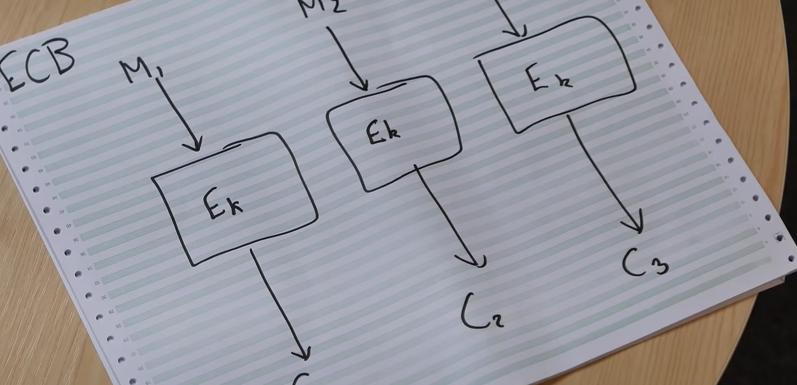 ECB
M1
M2
Ek
Ek
Ek
C2
C3